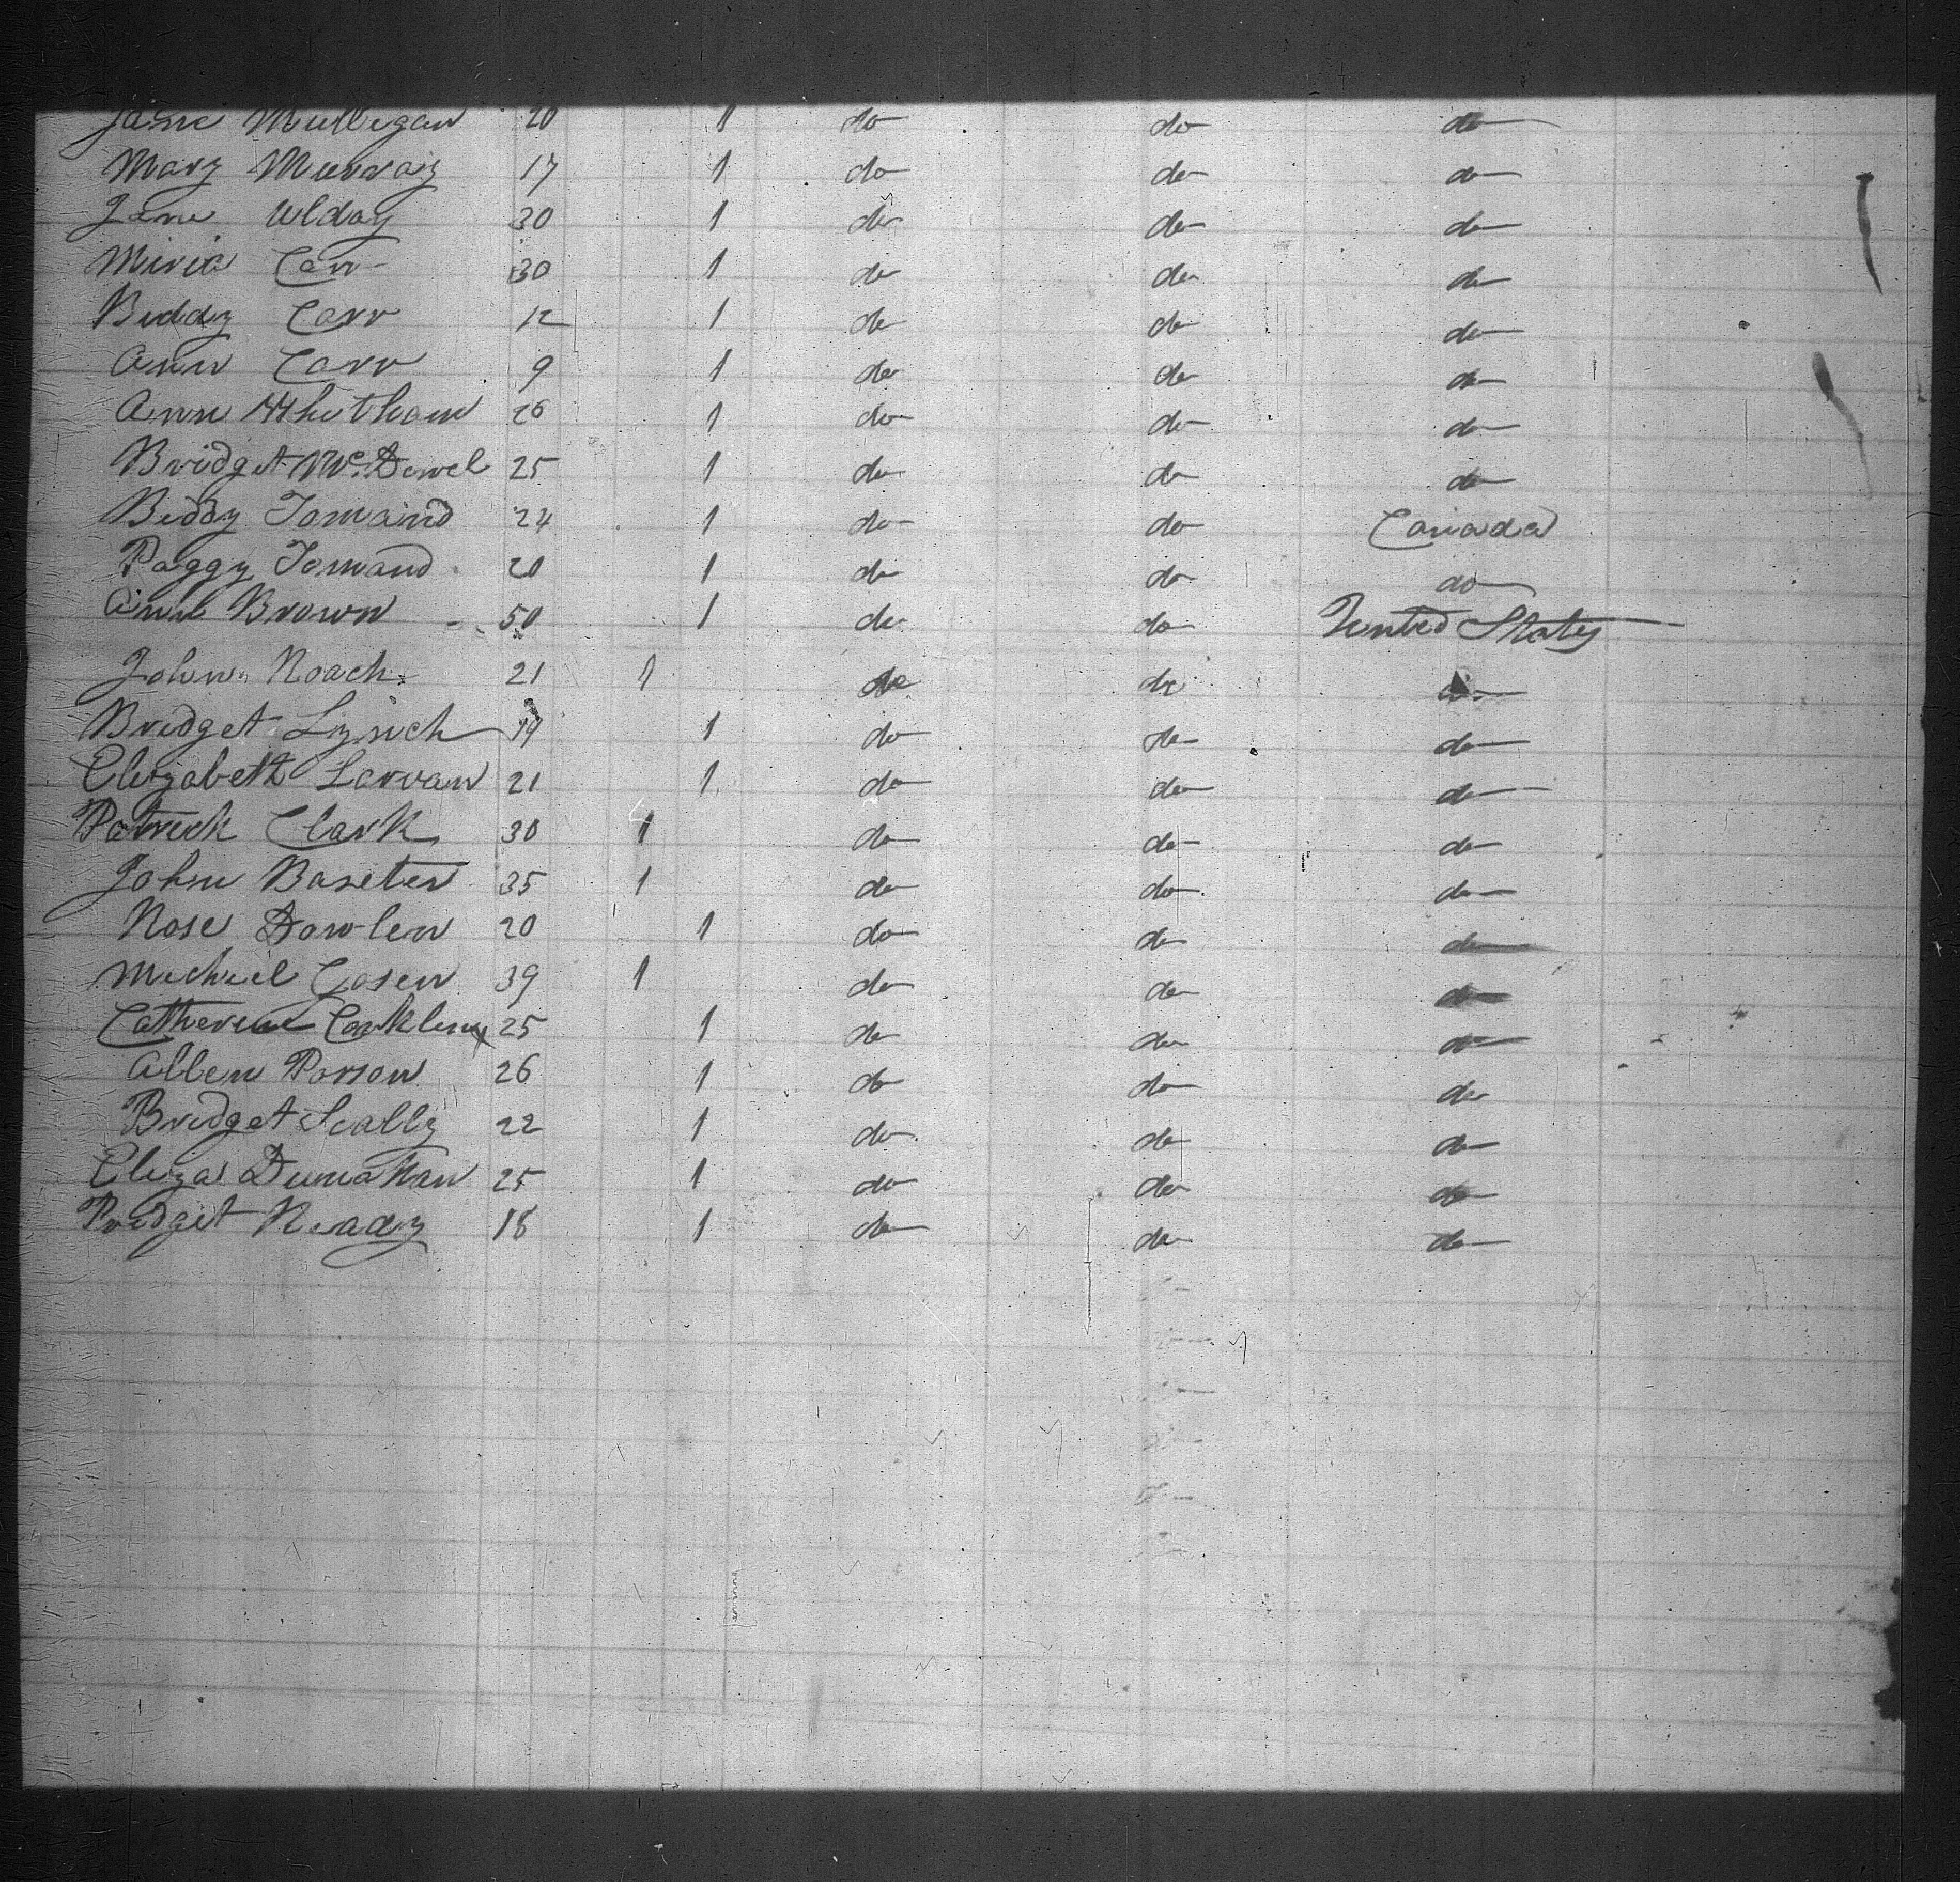 Jane Mulligan 20 1 do do do
Mary Murray 17 1 do do do
Jane Ulday 30 1 do do do
Miria Carr 30 1 do do do
Biddy Carr 12 1 do do do
Ann Carr 9 1 do do do
Ann Whitham 26 1 do do do
Bridget McDowel 25 1 do do do
Biddy Tomand 24 1 do do Canada
Paggy Tomand 20 1 do do do
Ann Brown 50 1 do do United States
John Roach 21 1 do do do
Bridget Lynch 19 1 do do do
Elizabeth Larvan 21 1 do do do
Patrick Clark 30 1 do do do
John Baseter 35 1 do do do
Rose Dowlen 20 1 do do do
Michiel Cosen 39 1 do do do
Catherine 25 1 do do do
Allen Parson 26 1 do do do
Bridget Scally 22 1 do do do
Eliza 25 1 do do do
Bridget Ready 18 1 do do do